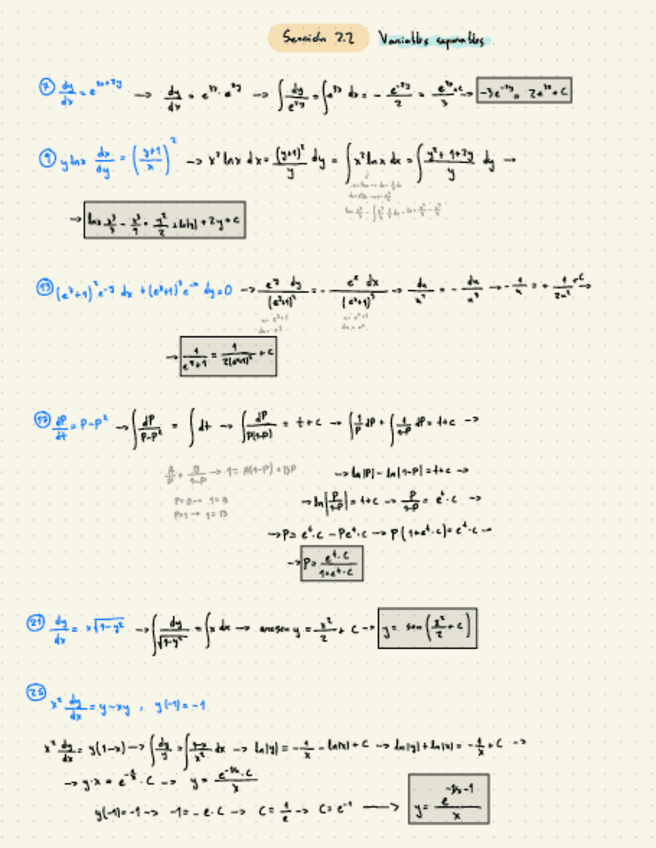 Sección 2.2 Variables separables
7 dy/dx = e^(3x+2y) → dy/dx = e^(3x) · e^(2y) → ∫ dy/e^(2y) = ∫ e^(3x) dx = - e^(-2y)/2 = e^(3x)/3 + c → -3e^(-2y) = 2e^(3x) + C
9 y ln x dx/dy = ((y+1)/x)^2 → x^2 ln x dx = (y+1)^2/y dy = ∫ x^2 ln x dx = ∫ (y^2+1+2y)/y dy →
→ ln x x^3/3 - x^3/9 = y^2/2 + ln|y| + 2y + C
13 (e^y+1)^2 e^-y dx + (e^x+1)^3 e^-x dy = 0 → e^y dy/(e^y+1)^2 = - e^x dx/(e^x+1)^3 → du/u^2 = - du/u^3 → - 1/u = + 1/2u^2 + C →
→ 1/(e^y+1) = 1/2(e^x+1)^2 + C
17 dP/dt = P-P^2 → ∫ dP/(P-P^2) = ∫ dt → ∫ dP/(P(1-P)) = t+c → ∫ 1/P dP + ∫ 1/(1-P) dP = t+c →
A/P + B/(1-P) → 1 = A(1-P) + BP → ln|P| - ln|1-P| = t+c →
P=0 → 1=A → ln|P/(1-P)| = t+c → P/(1-P) = e^t · C →
P=1 → 1=B
→ P = e^t · C - Pe^t · C → P(1+e^t · C) = e^t · C →
→ P = e^t · C/(1+e^t · C)
21 dy/dx = x√(1-y^2) → ∫ dy/√(1-y^2) = ∫ x dx → arcsen y = x^2/2 + C → y = sen(x^2/2 + C)
25 x^2 dy/dx = y-xy , y(-1) = -1
x^2 dy/dx = y(1-x) → ∫ dy/y = ∫ (1-x)/x^2 dx → ln|y| = -1/x - ln|x| + C → ln|y| + ln|x| = -1/x + C →
→ y·x = e^(-1/x) · C → y = e^(-1/x) · C/x
y(-1) = -1 → -1 = -e·C → C = 1/e → C = e^-1 → y = e^(-1/x-1)/x